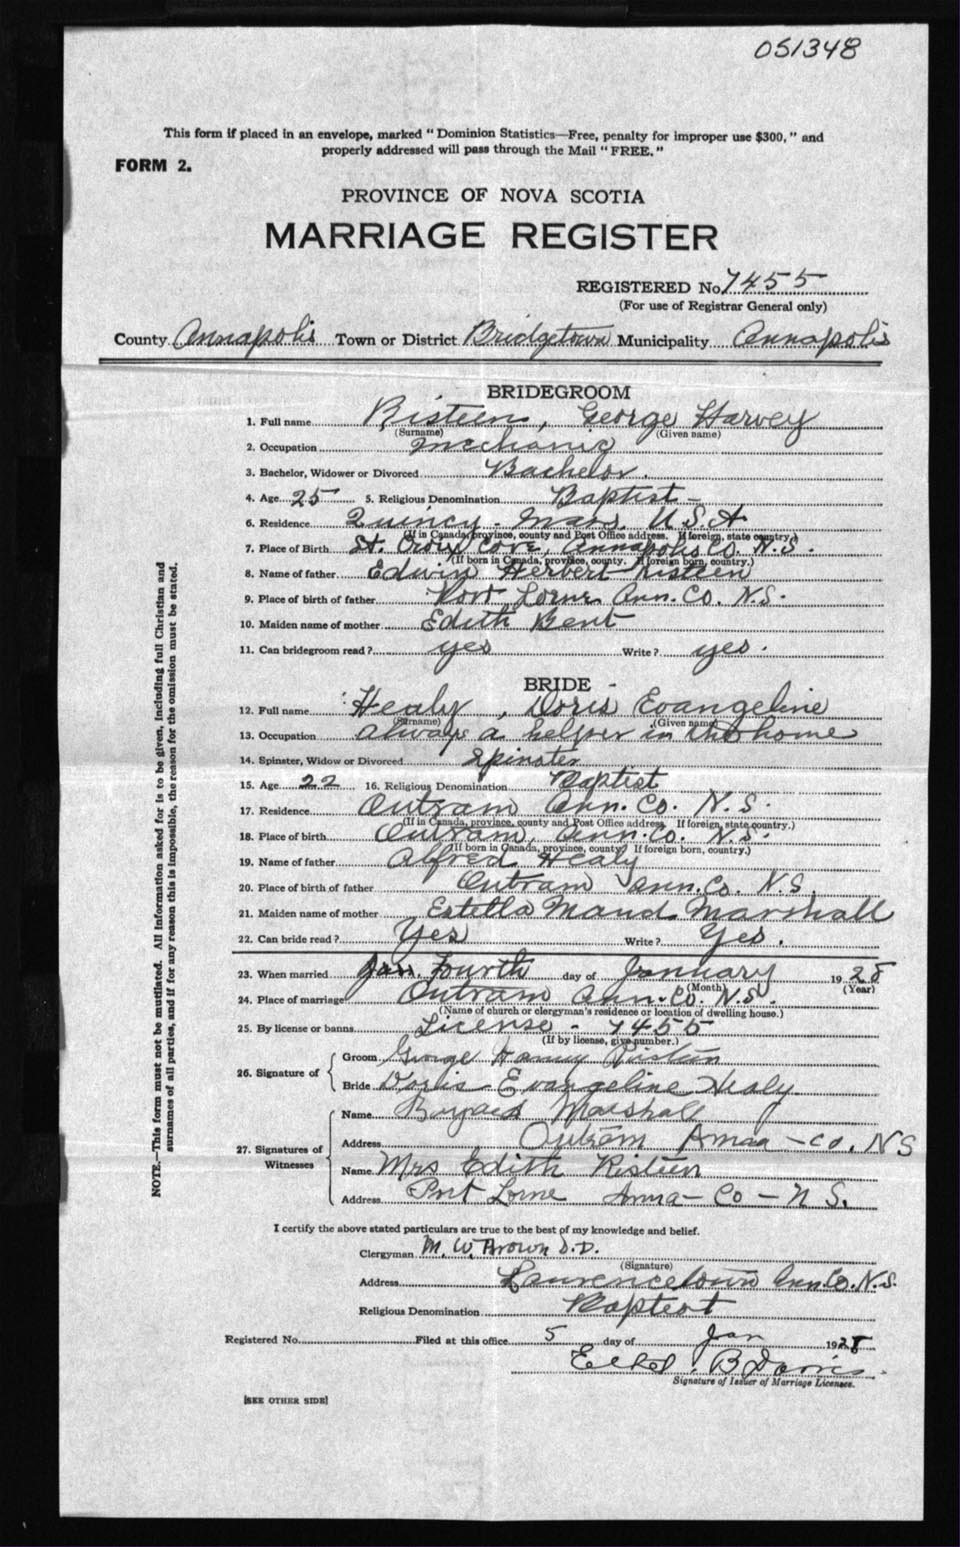 051348
This form if placed in an envelope, marked "Dominion Statistics—Free, penalty for improper use $300," and
properly addressed will pass through the Mail "FREE."
FORM 2.
PROVINCE OF NOVA SCOTIA
MARRIAGE REGISTER
REGISTERED No. 7455
(For use of Registrar General only)
County Annapolis Town or District Bridgetown Municipality Annapolis
BRIDEGROOM
1. Full name Risteen, George Harvey
(Surname) (Given name)
2. Occupation Mechanic
3. Bachelor, Widower or Divorced Bachelor.
4. Age 25 5. Religious Denomination Baptist -
6. Residence Quincy - Mass. U.S.A
(If in Canada, province, county and Post Office address. If foreign, state country.)
7. Place of Birth St. Croix Cove, Annapolis Co. N.S.
(If born in Canada, province, county. If foreign born, country.)
8. Name of father Edwin Herbert Risteen
9. Place of birth of father Port Lorne Ann. Co. N.S.
10. Maiden name of mother Edith Bent
11. Can bridegroom read? yes Write? yes.
BRIDE -
12. Full name Healy, Doris Evangeline
(Surname) (Given name)
13. Occupation always a helper in the home
14. Spinster, Widow or Divorced Spinster
15. Age 22 16. Religious Denomination Baptist
17. Residence Outram Ann. Co. N.S.
(If in Canada, province, county and Post Office address. If foreign, state country.)
18. Place of birth Outram, Ann. Co. N.S.
(If born in Canada, province, county? If foreign born, country.)
19. Name of father Alfred Healy
20. Place of birth of father Outram Ann. Co. N.S.
21. Maiden name of mother Estella Maud Marshall
22. Can bride read? Yes Write? Yes.
23. When married Jan. Fourth day of January 1928
(Month) (Year)
24. Place of marriage Outram Ann. Co. N.S.
(Name of church or clergyman's residence or location of dwelling house.)
25. By license or banns License - 7455
(If by license, give number.)
26. Signature of
Groom George Harvey Risteen
Bride Doris Evangeline Healy
27. Signatures of Witnesses
Name Marshall
Address Outram Anna - Co. NS
Name Mrs Edith Risteen
Address Port Lorne Anna - Co - N S.
I certify the above stated particulars are true to the best of my knowledge and belief.
Clergyman M. W. Brown D.D.
(Signature)
Address Laurencetown Ann Co. N.S.
Religious Denomination Baptist
Registered No. Filed at this office 5 day of Jan 1928
B Davis
Signature of Issuer of Marriage Licenses.
[SEE OTHER SIDE]
NOTE.—This form must not be mutilated. All information asked for is to be given, including full Christian and
surnames of all parties, and if for any reason this is impossible, the reason for the omission must be stated.